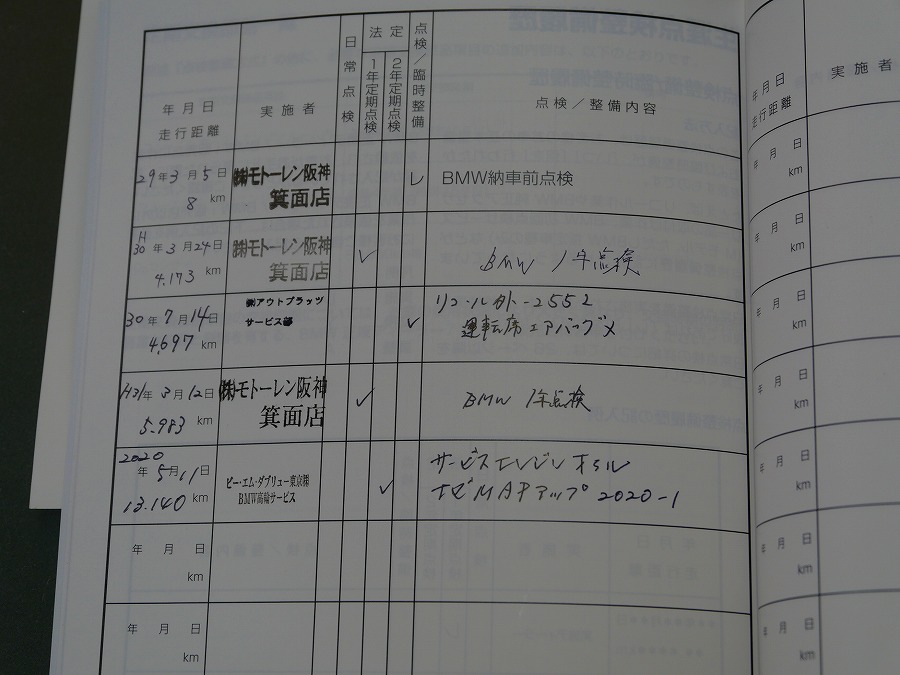 年月日
走行距離
実施者
日常点検
法定
1年定期点検
2年定期点検
点検／臨時整備
点検／整備内容
29年3月5日
8 km
㈱モトーレン阪神
箕面店
レ
BMW納車前点検
H
30年3月24日
4,173 km
㈱モトーレン阪神
箕面店
BMW 1年点検
30年7月14日
4,697 km
㈱アウトプラッツ
サービス部
リコール外-2552
運転席エアバッグ
H31年3月12日
5,983 km
㈱モトーレン阪神
箕面店
BMW 1年点検
2020
年5月11日
13,140 km
ビー・エム・ダブリュー東京㈱
BMW高輪サービス
サービスエンジンオイル
ナビMAPアップ 2020-1
年 月 日
km
年 月 日
km
年月日
走行距離
実施者
年 月 日
km
年 月 日
km
年 月 日
km
年 月 日
km
年 月 日
km
年 月 日
km
年 月 日
km